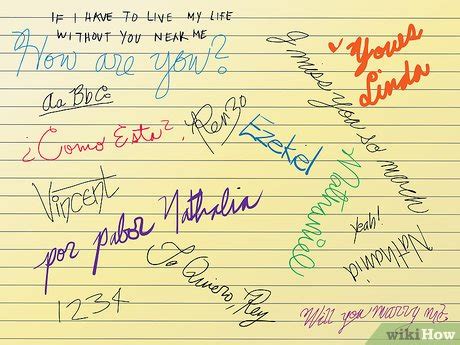 IF I HAVE TO LIVE MY LIFE
WITHOUT YOU NEAR ME
How are you?
Yours
Linda
I miss you so much
Aa BbCc
¿Como Esta?,
Renzo
Ezekiel
Nathaniel
Vincent
Yeah!
Nathania
por pabor Nathalia
Ta Quiero, Rey
1234
Will you marry me.
wikiHow